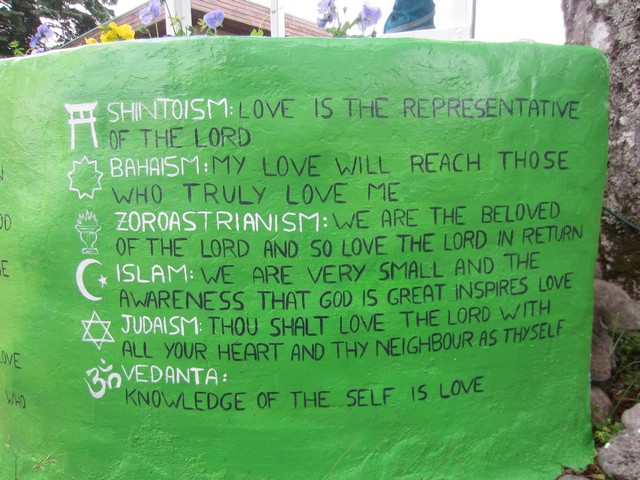 SHINTOISM: LOVE IS THE REPRESENTATIVE
OF THE LORD
BAHAISM: MY LOVE WILL REACH THOSE
WHO TRULY LOVE ME
ZOROASTRIANISM: WE ARE THE BELOVED
OF THE LORD AND SO LOVE THE LORD IN RETURN
ISLAM: WE ARE VERY SMALL AND THE
AWARENESS THAT GOD IS GREAT INSPIRES LOVE
JUDAISM: THOU SHALT LOVE THE LORD WITH
ALL YOUR HEART AND THY NEIGHBOUR AS THYSELF
ॐ VEDANTA:
KNOWLEDGE OF THE SELF IS LOVE
WHO